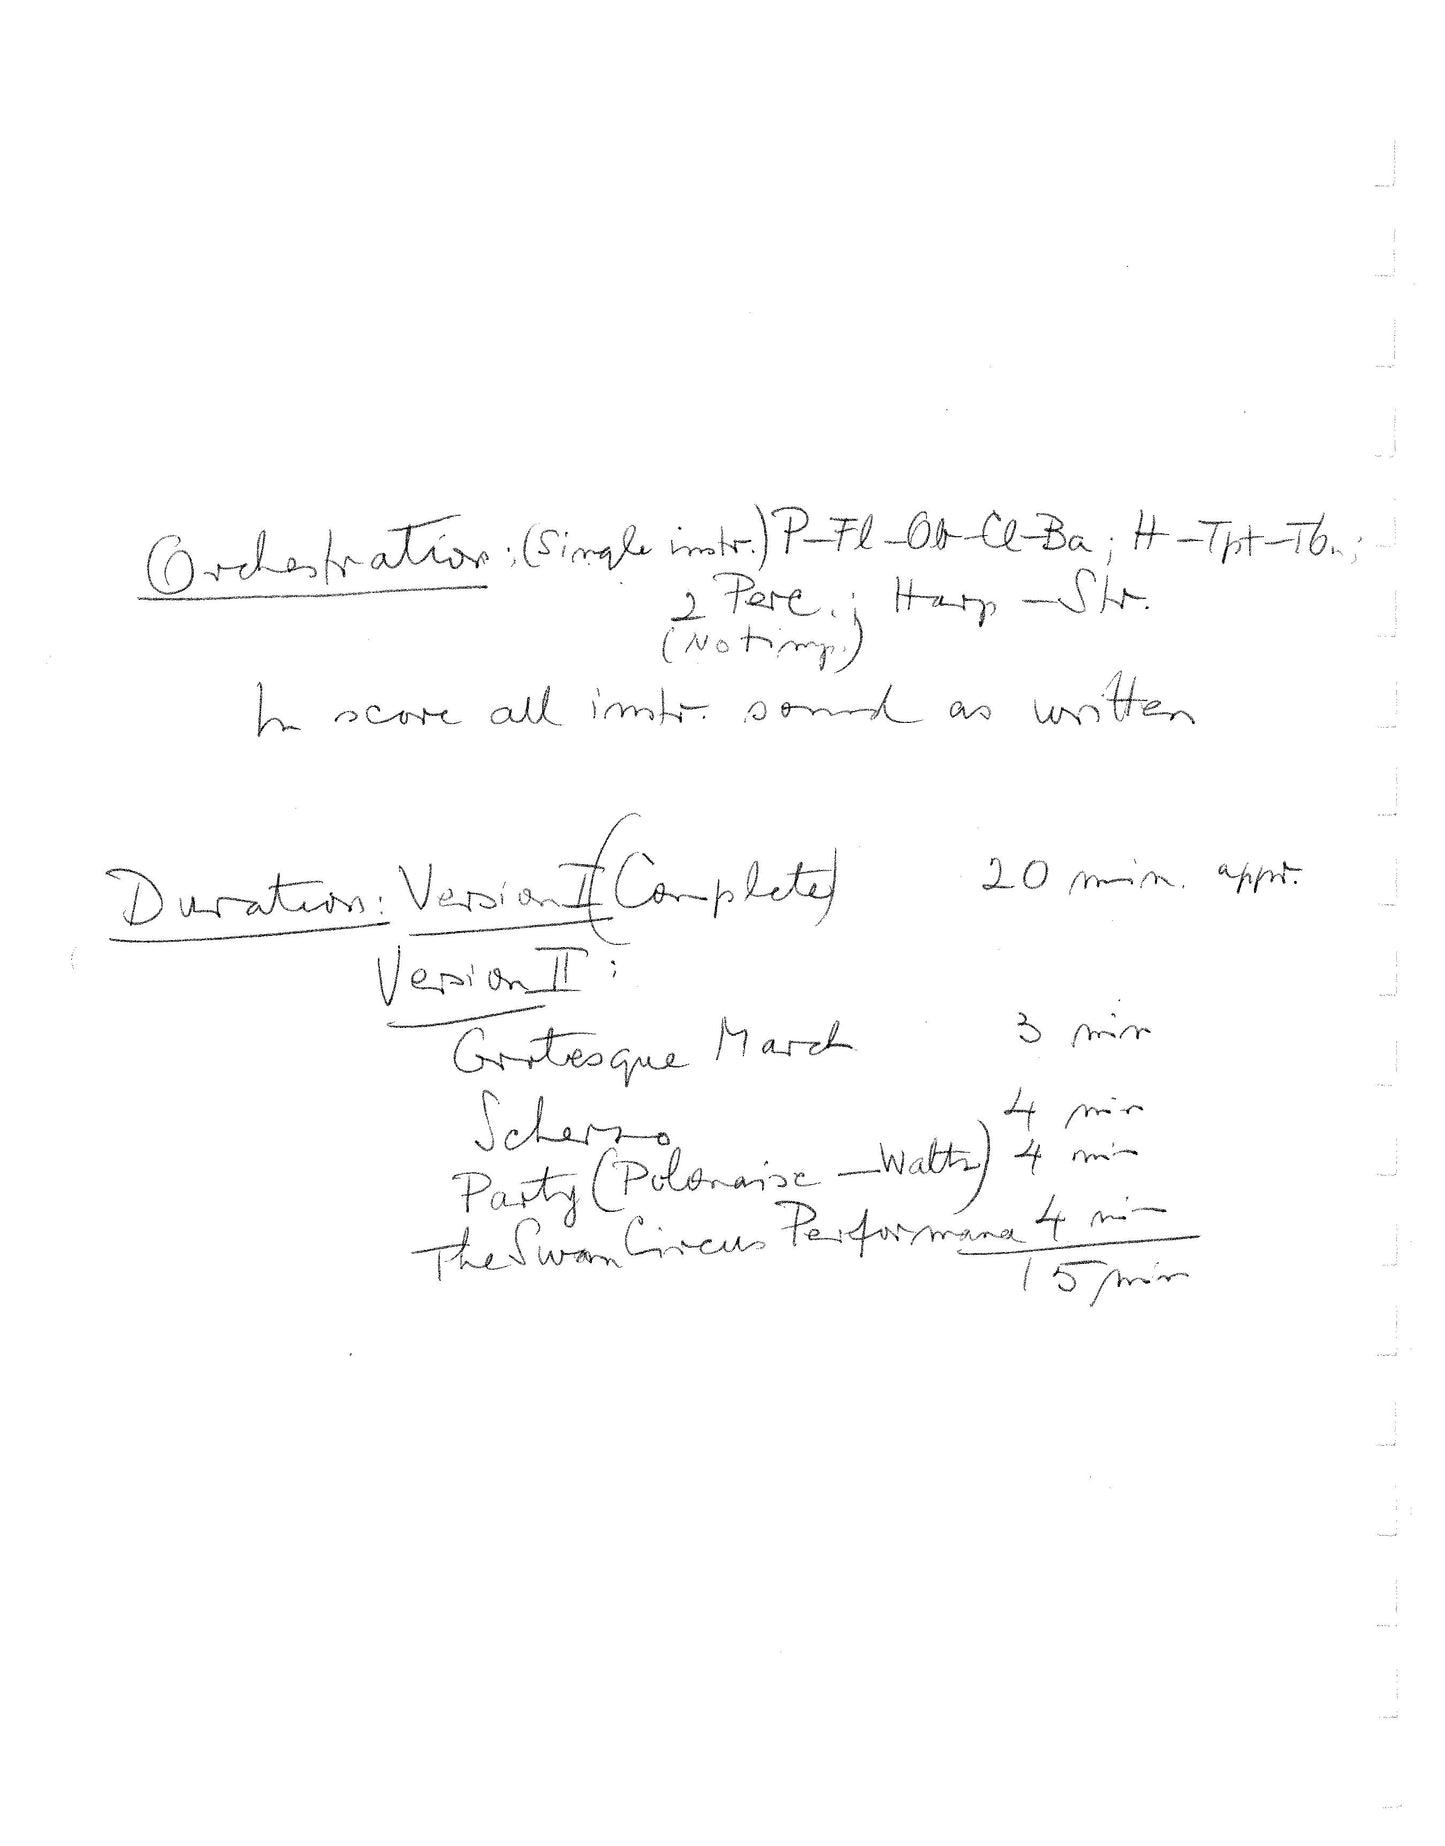 Orchestration: (Single instr.) P–Fl–Ob–Cl–Ba; H–Tpt–Tbn;
2 Perc.; Harp–Str.
(No timp.)
In score all instr. sound as written
Duration: Version II (Complete) 20 min. appr.
Version II:
Grotesque March 3 min
Scherzo 4 min
Party (Polonaise–Waltz) 4 min
The Swan Circus Performance 4 min
15 min